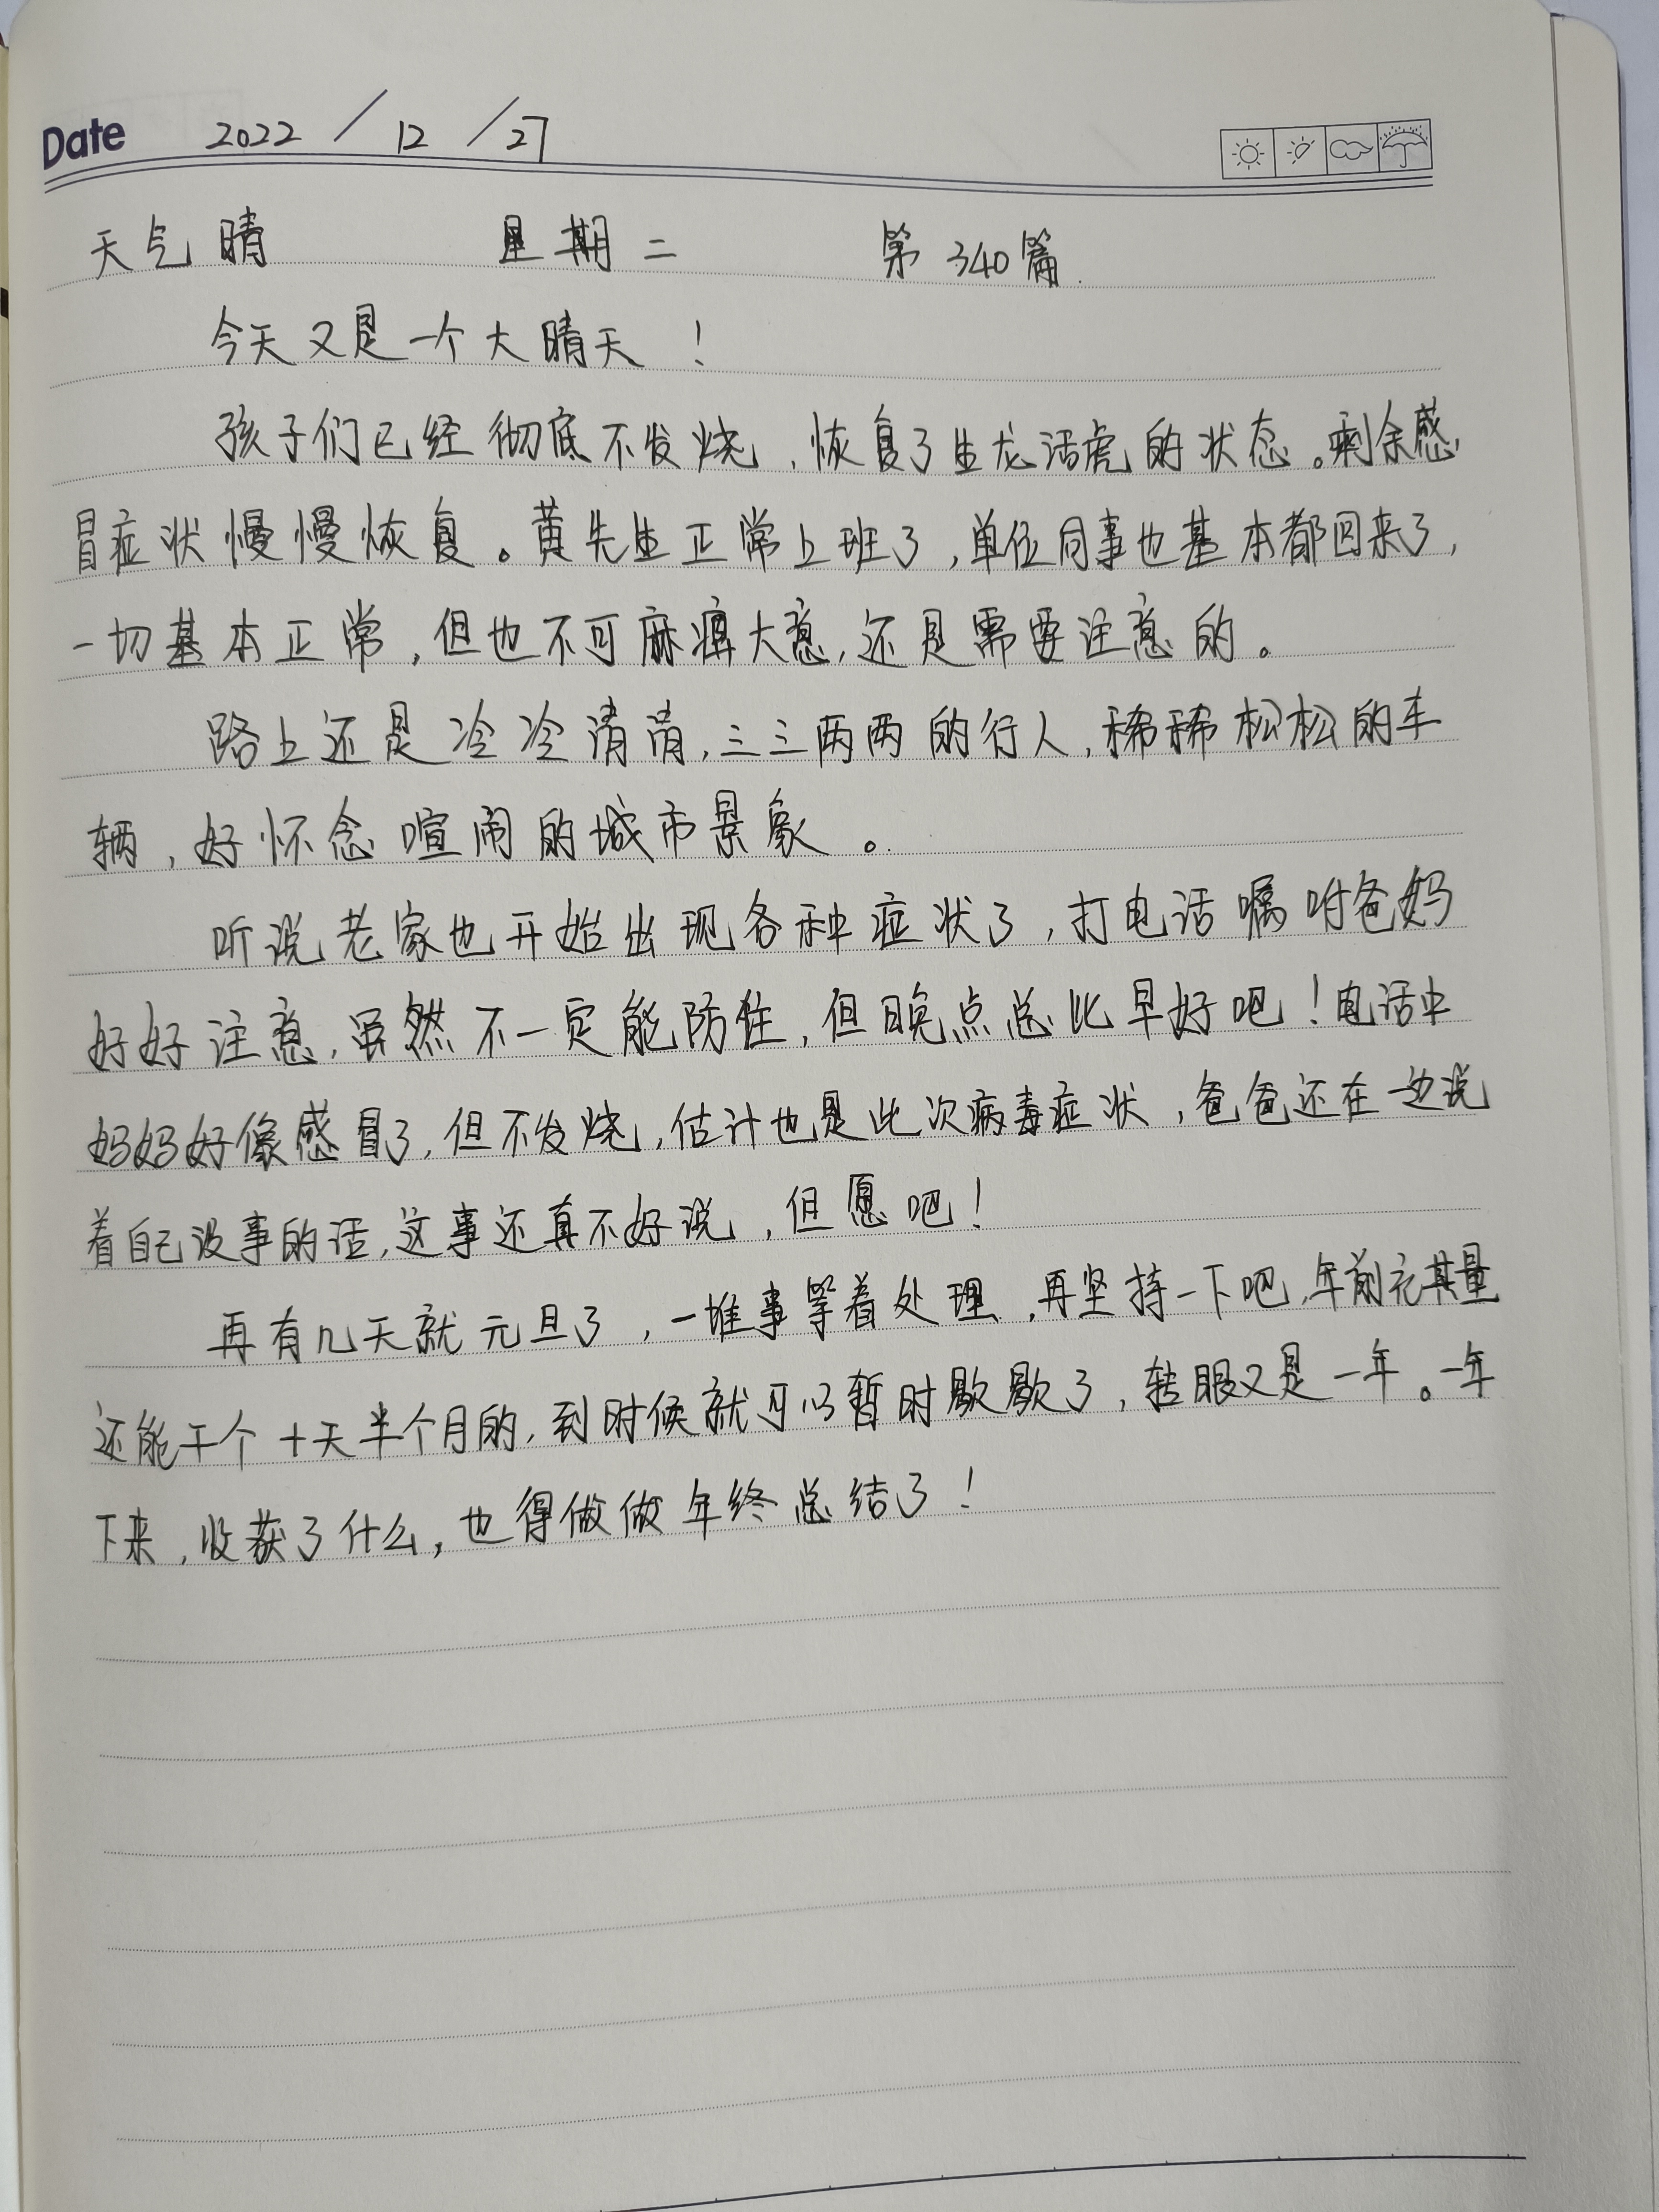 Date 2022 / 12 / 27
天气 晴 星期二 第340篇.
今天又是一个大晴天！
孩子们已经彻底不发烧，恢复了生龙活虎的状态。剩余感
冒症状慢慢恢复。黄先生正常上班了，单位同事也基本都回来了，
一切基本正常，但也不可麻痹大意，还是需要注意的。
路上还是冷冷清清，三三两两的行人，稀稀松松的车
辆，好怀念喧闹的城市景象。
听说老家也开始出现各种症状了，打电话嘱咐爸妈
好好注意，虽然不一定能防住，但晚点总比早好吧！电话中
妈妈好像感冒了，但不发烧，估计也是此次病毒症状，爸爸还在一边说
着自己没事的话，这事还真不好说，但愿吧！
再有几天就元旦了，一堆事等着处理，再坚持一下吧，年前充其量
还能干个十天半个月的，到时候就可以暂时歇歇了，转眼又是一年。一年
下来，收获了什么，也得做做年终总结了！